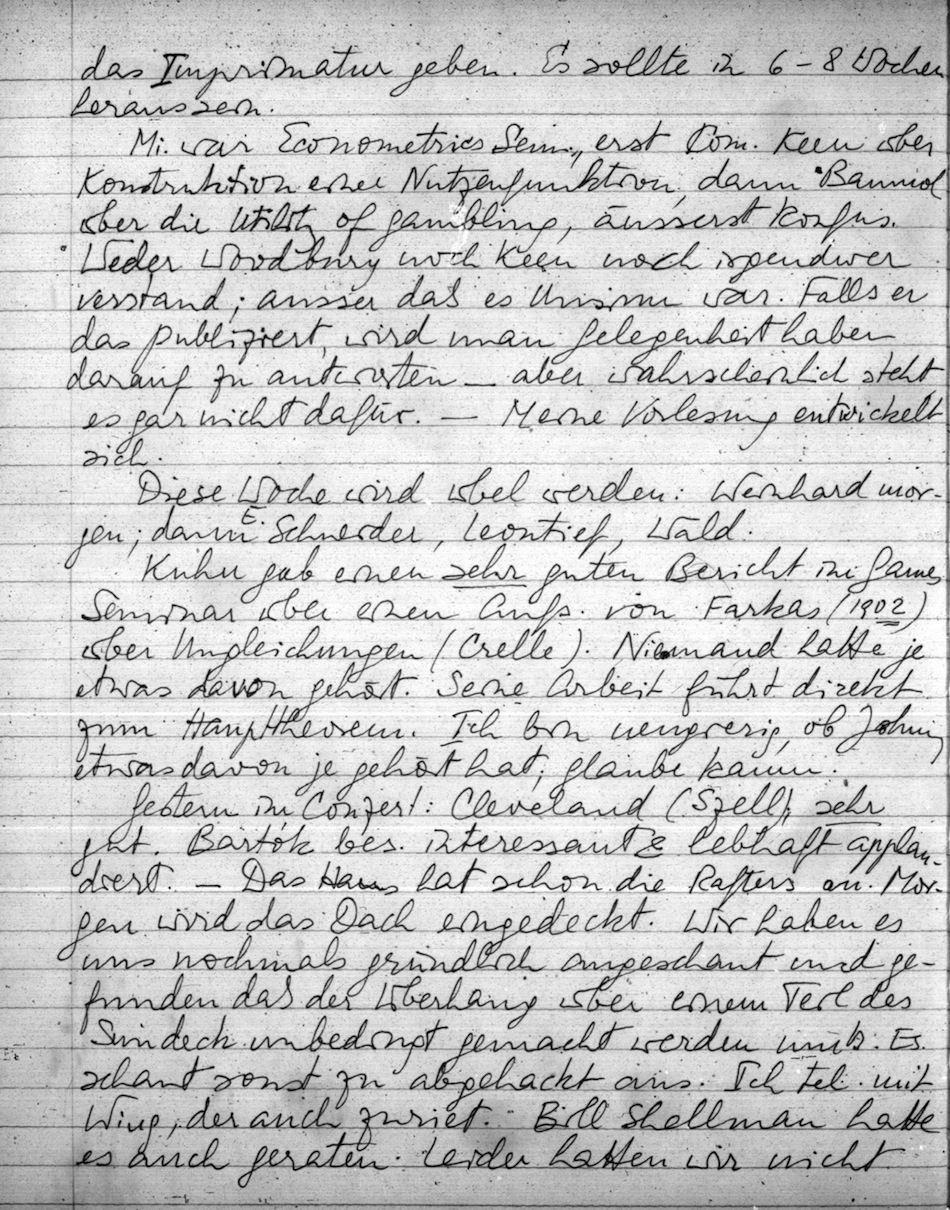 das Imprimatur geben. Es sollte in 6–8 Wochen
heraussein.
Mi. war Econometrics Sem., erst Com. Keen über
Konstruktion einer Nutzenfunktion, dann Baumol
über die Utility of gambling, äusserst konfus.
Weder Woodbury noch Keen noch irgendwer
verstand; ausser daß es Unsinn war. Falls er
das publiziert, wird man Gelegenheit haben
darauf zu antworten – aber wahrscheinlich steht
es gar nicht dafür. – Meine Vorlesung entwickelt
sich.
Diese Woche wird übel werden: Weinhard mor-
gen; dann E. Schneider, Leontief, Wald.
Kuhn gab einen sehr guten Bericht im Games
Seminar über einen Aufs. von Farkas (1902)
über Ungleichungen (Crelle). Niemand hatte je
etwas davon gehört. Seine Arbeit führt direkt
zum Haupttheorem. Ich bin neugierig, ob Johnny
etwas davon je gehört hat; glaube kaum.
Gestern im Conzert: Cleveland (Szell), sehr
gut. Bartók bes. interessant & lebhaft applau-
diert. – Das Haus hat schon die Rafters an. Mor-
gen wird das Dach eingedeckt. Wir haben es
uns nochmals gründlich angeschaut und ge-
funden daß der Überhang über einem Teil des
Sundeck unbedingt gemacht werden muß. Es
schaut sonst zu abgehackt aus. Ich tel. mit
Wing, der auch zuriet. Bill Shellman hatte
es auch geraten. Leider hatten wir nicht